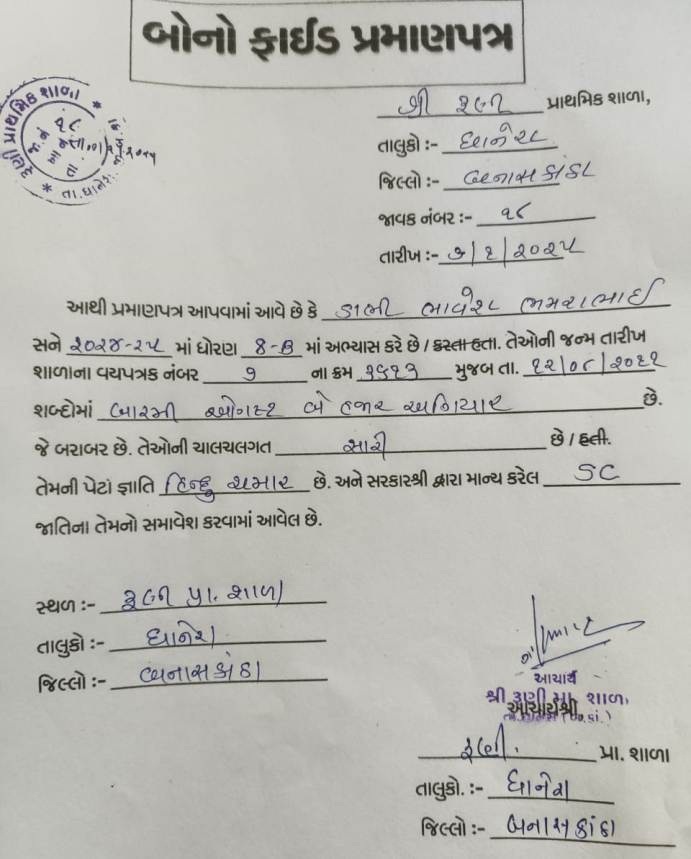 બોનો ફાઈડ પ્રમાણપત્ર
શ્રી રૂણી પ્રાથમિક શાળા,
તાલુકો :- ધાનેરા
જિલ્લો :- બનાસકાંઠા
જાવક નંબર :- ૧૮
તારીખ :- ૭/૨/૨૦૨૫
આથી પ્રમાણપત્ર આપવામાં આવે છે કે ડાભી ભાવેશ ભમરાભાઈ
સને ૨૦૨૪-૨૫ માં ધોરણ 8-B માં અભ્યાસ કરે છે / કરતા હતા. તેઓની જન્મ તારીખ
શાળાના વયપત્રક નંબર ૭ ના ક્રમ મુજબ તા. ૧૨/૦૮/૨૦૧૧
શબ્દોમાં બારમી ઓગસ્ટ બે હજાર અગિયાર છે.
જે બરાબર છે. તેઓની ચાલચલગત સારી છે / હતી.
તેમની પેટા જ્ઞાતિ હિન્દુ ચમાર છે. અને સરકારશ્રી દ્વારા માન્ય કરેલ SC
જાતિના તેમનો સમાવેશ કરવામાં આવેલ છે.
સ્થળ :- રૂણી પ્રા. શાળા
તાલુકો :- ધાનેરા
જિલ્લો :- બનાસકાંઠા
આચાર્ય
શ્રી રૂણી પ્રા. શાળા
આચાર્યશ્રી,
રૂણી. પ્રા. શાળા
તાલુકો. :- ધાનેરા
જિલ્લો :- બનાસકાંઠા